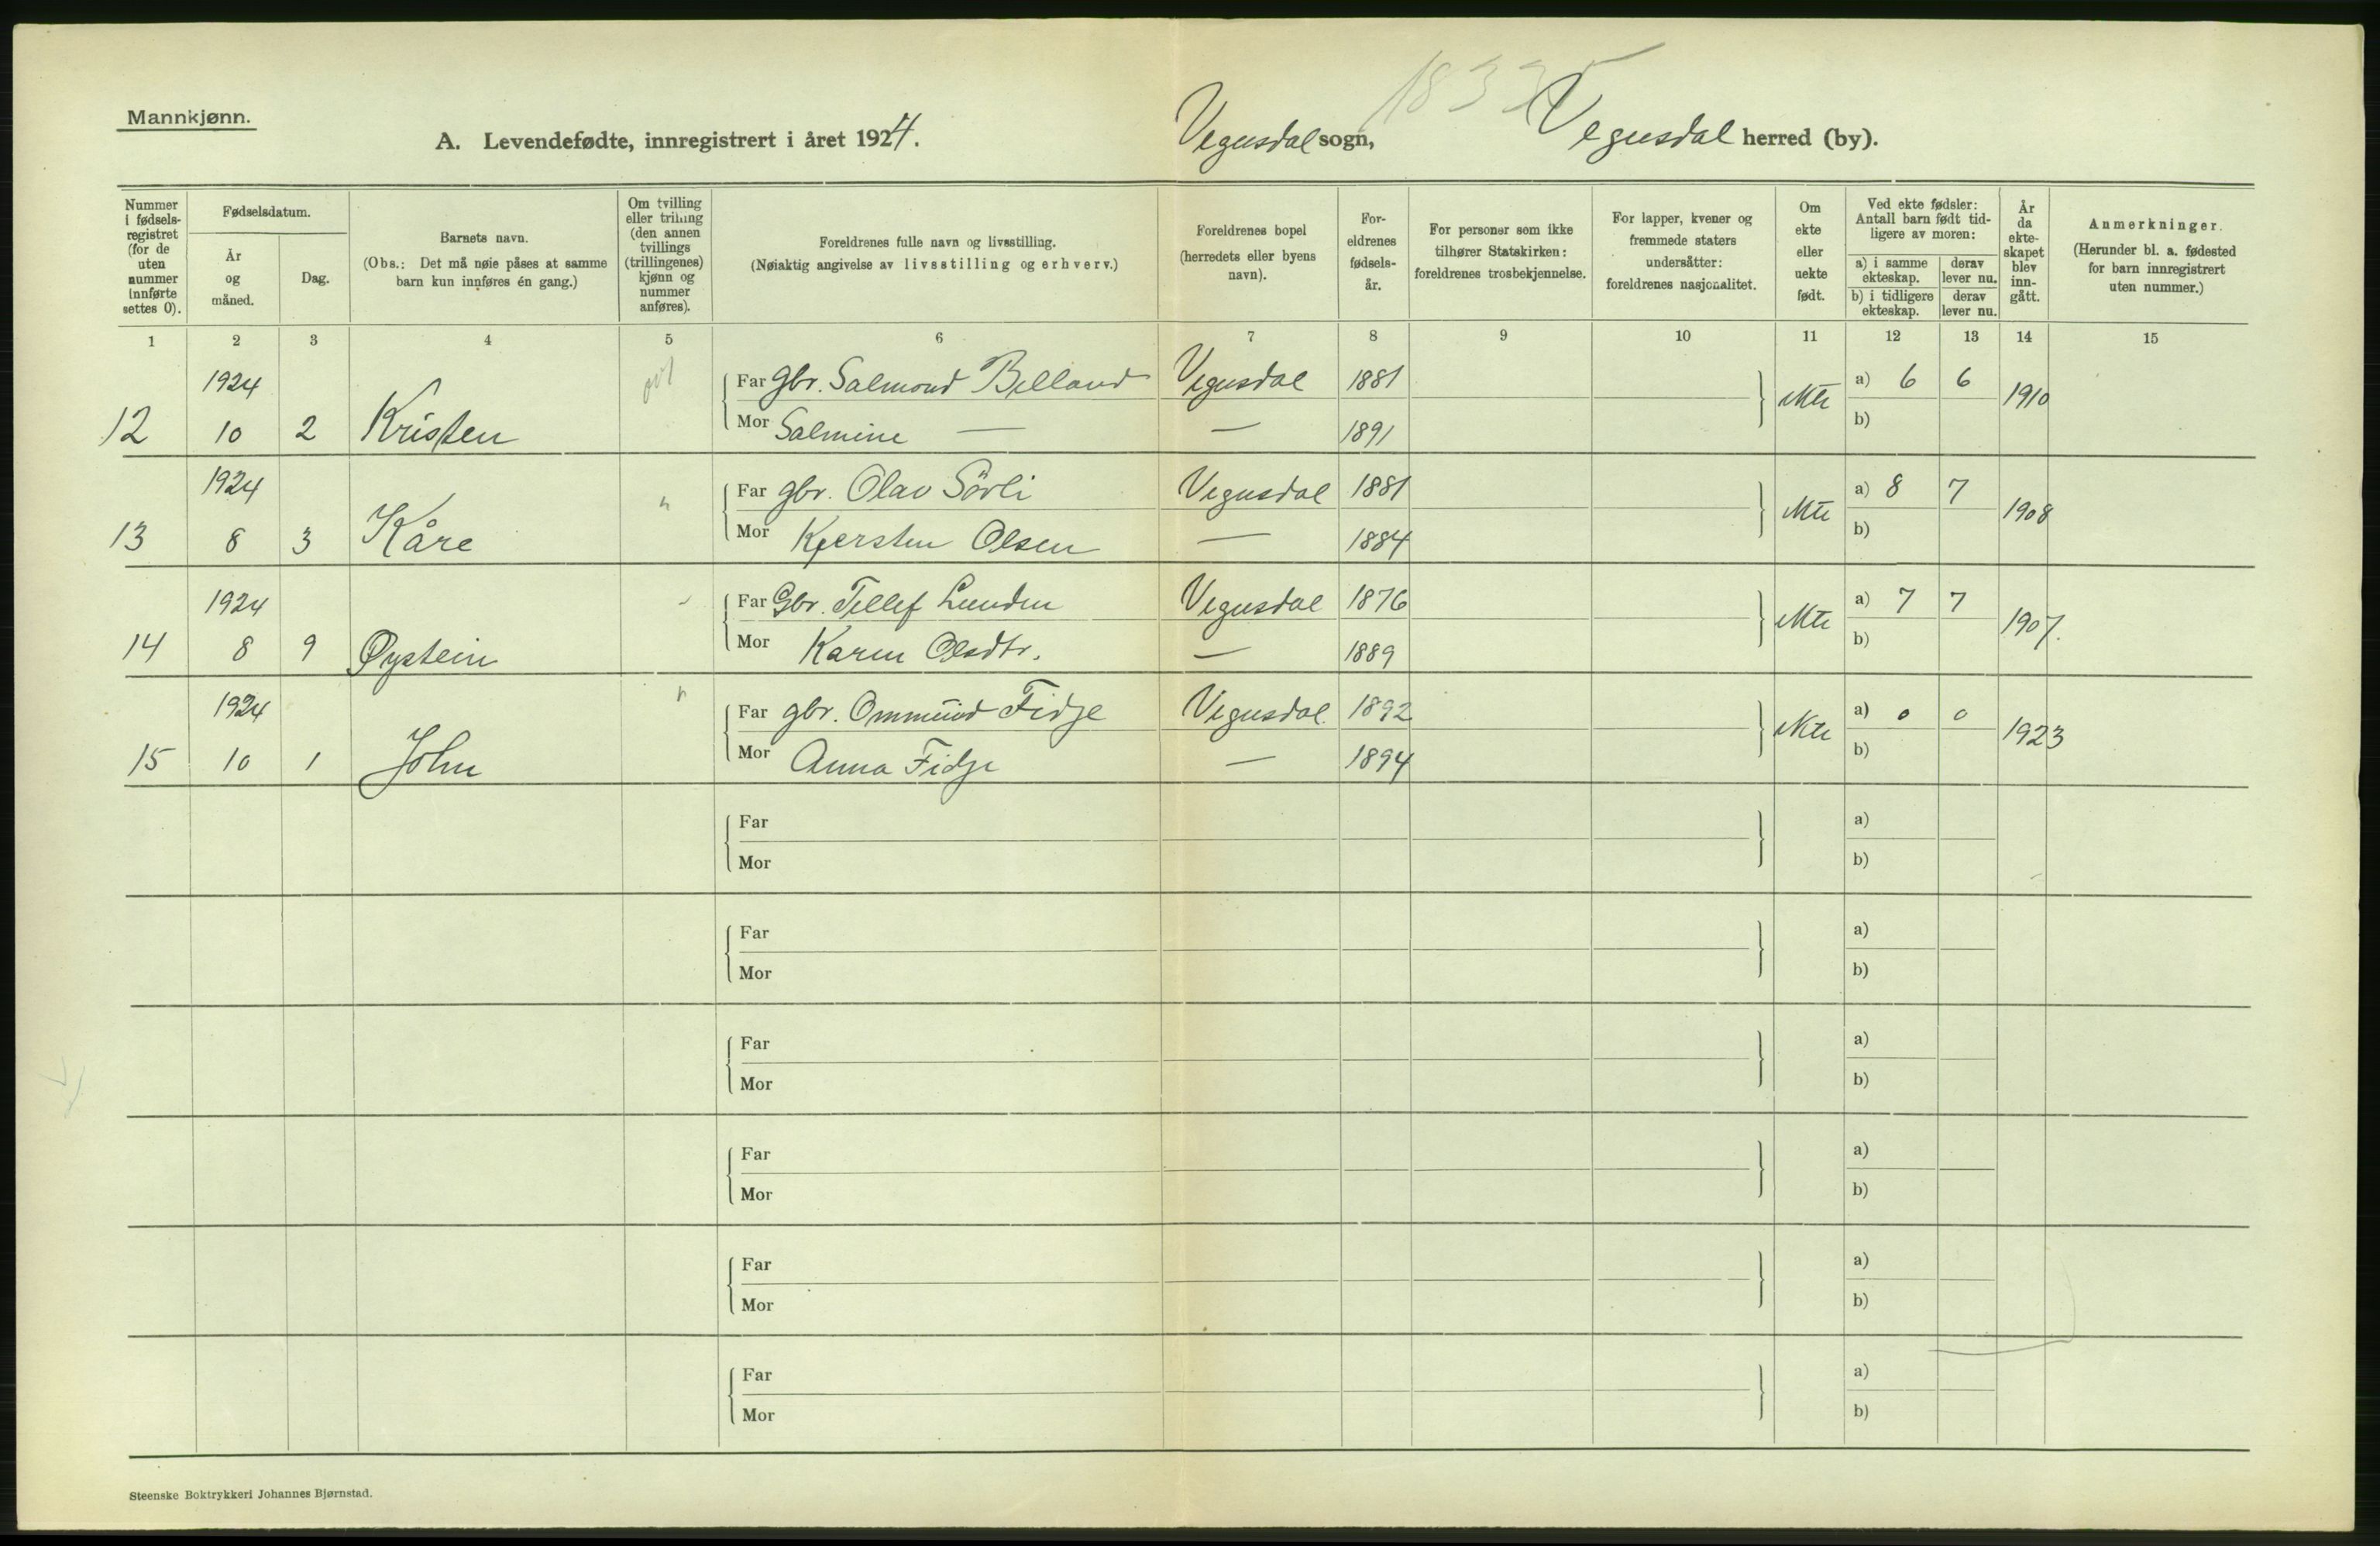 Mannkjønn.
A. Levendefødte, innregistrert i året 1924.
Vegusdal sogn,
Vegusdal herred (by).
Nummer i fødsels-registret (for de uten nummer innførte settes 0).
Fødselsdatum.
År og måned.
Dag.
Barnets navn.
(Obs.: Det må nøie påses at samme barn kun innføres én gang.)
Om tvilling eller trilling (den annen tvillings (trillingenes) kjønn og nummer anføres).
Foreldrenes fulle navn og livsstilling.
(Nøiaktig angivelse av livsstilling og erhverv.)
Foreldrenes bopel (herredets eller byens navn).
For-eldrenes fødsels-år.
For personer som ikke tilhører Statskirken: foreldrenes trosbekjennelse.
For lapper, kvener og fremmede staters undersåtter: foreldrenes nasjonalitet.
Om ekte eller uekte født.
Ved ekte fødsler: Antall barn født tid-ligere av moren:
a) i samme ekteskap.
derav lever nu.
b) i tidligere ekteskap.
derav lever nu.
År da ekte-skapet blev inn-gått.
Anmerkninger.
(Herunder bl. a. fødested for barn innregistrert uten nummer.)
1 2 3 4 5 6 7 8 9 10 11 12 13 14 15
1924 Far gbr. Salmond Belland Vegusdal 1881 a) 6 6 1910
12 10 2 Kristen Mor Salmine — — 1891 b)
1924 Far gbr. Olav Sörli Vegusdal 1881 a) 8 7 1908
13 8 3 Kåre Mor Kjersten Olsen — 1884 b)
1924 Far Gbr. Tellef Lunden Vegusdal 1876 a) 7 7 1907.
14 8 9 Øystein Mor Karen Olsdtr. — 1889 b)
1924 Far gbr. Ommund Fidje Vegusdal 1892 a) 0 0 1923
15 10 1 John Mor Anna Fidje — 1894 b)
Far a)
Mor b)
Far a)
Mor b)
Far a)
Mor b)
Far a)
Mor b)
Far a)
Mor b)
Far a)
Mor b)
Steenske Boktrykkeri Johannes Bjørnstad.